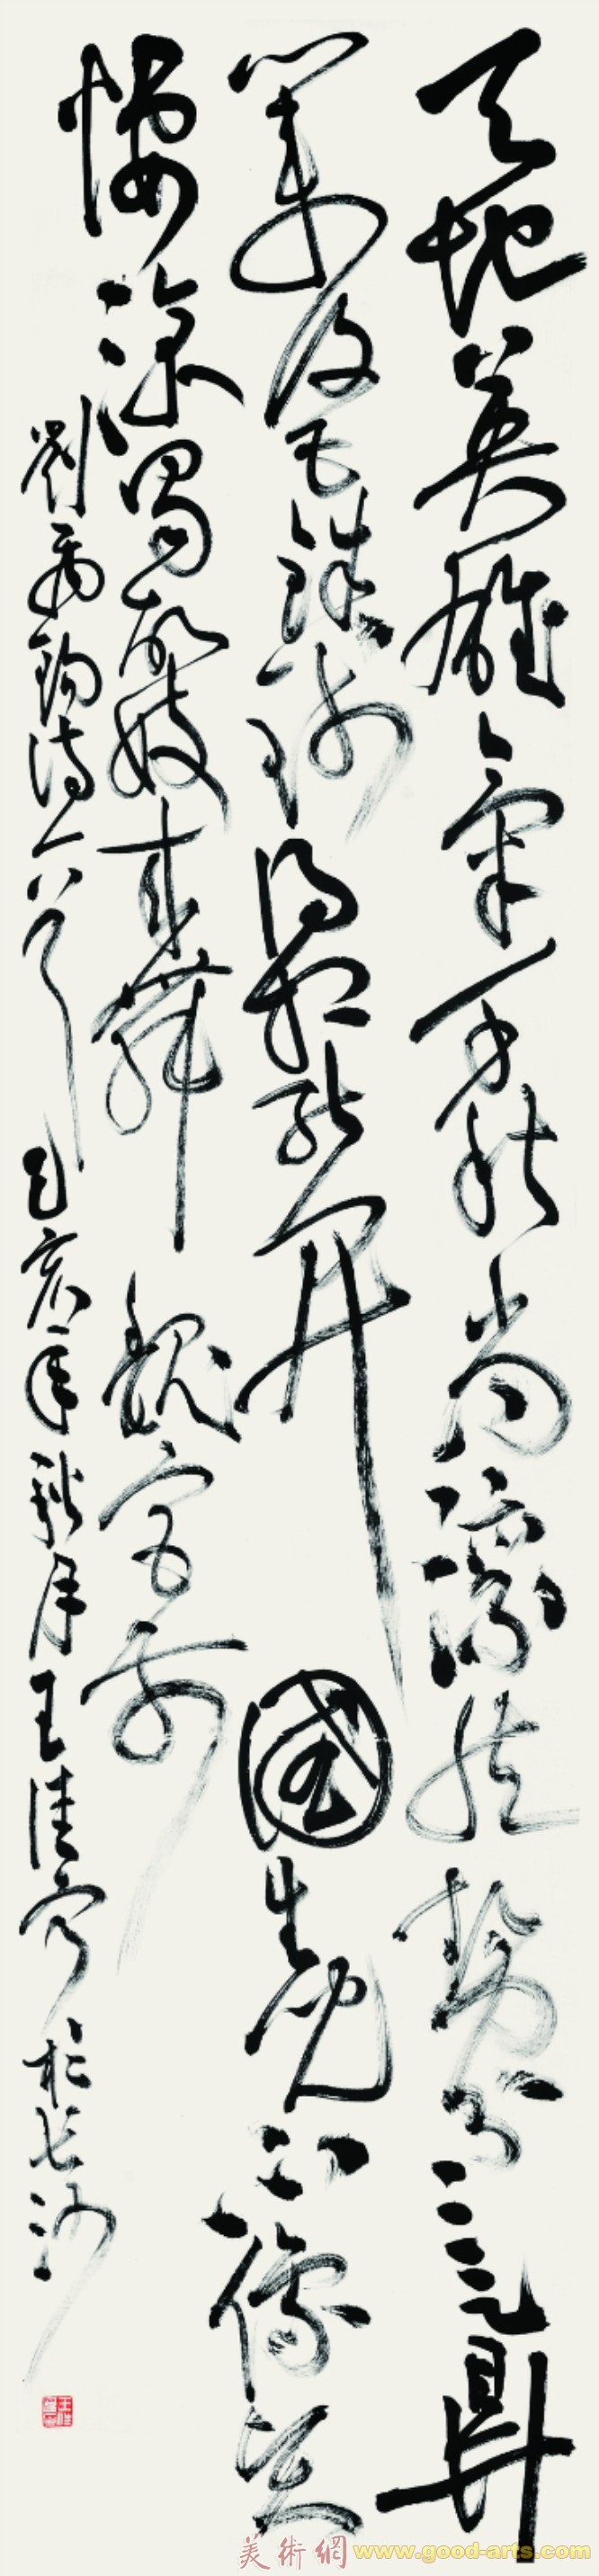 天地英雄氣万秋尚凜然勢分三足鼎
業復五銖錢得相能開國生兒不像賢
悽涼蜀故妓來舞魏宮前
劉禹錫詩一首己亥年秋月王佳於長沙
美術網 www.good-arts.com